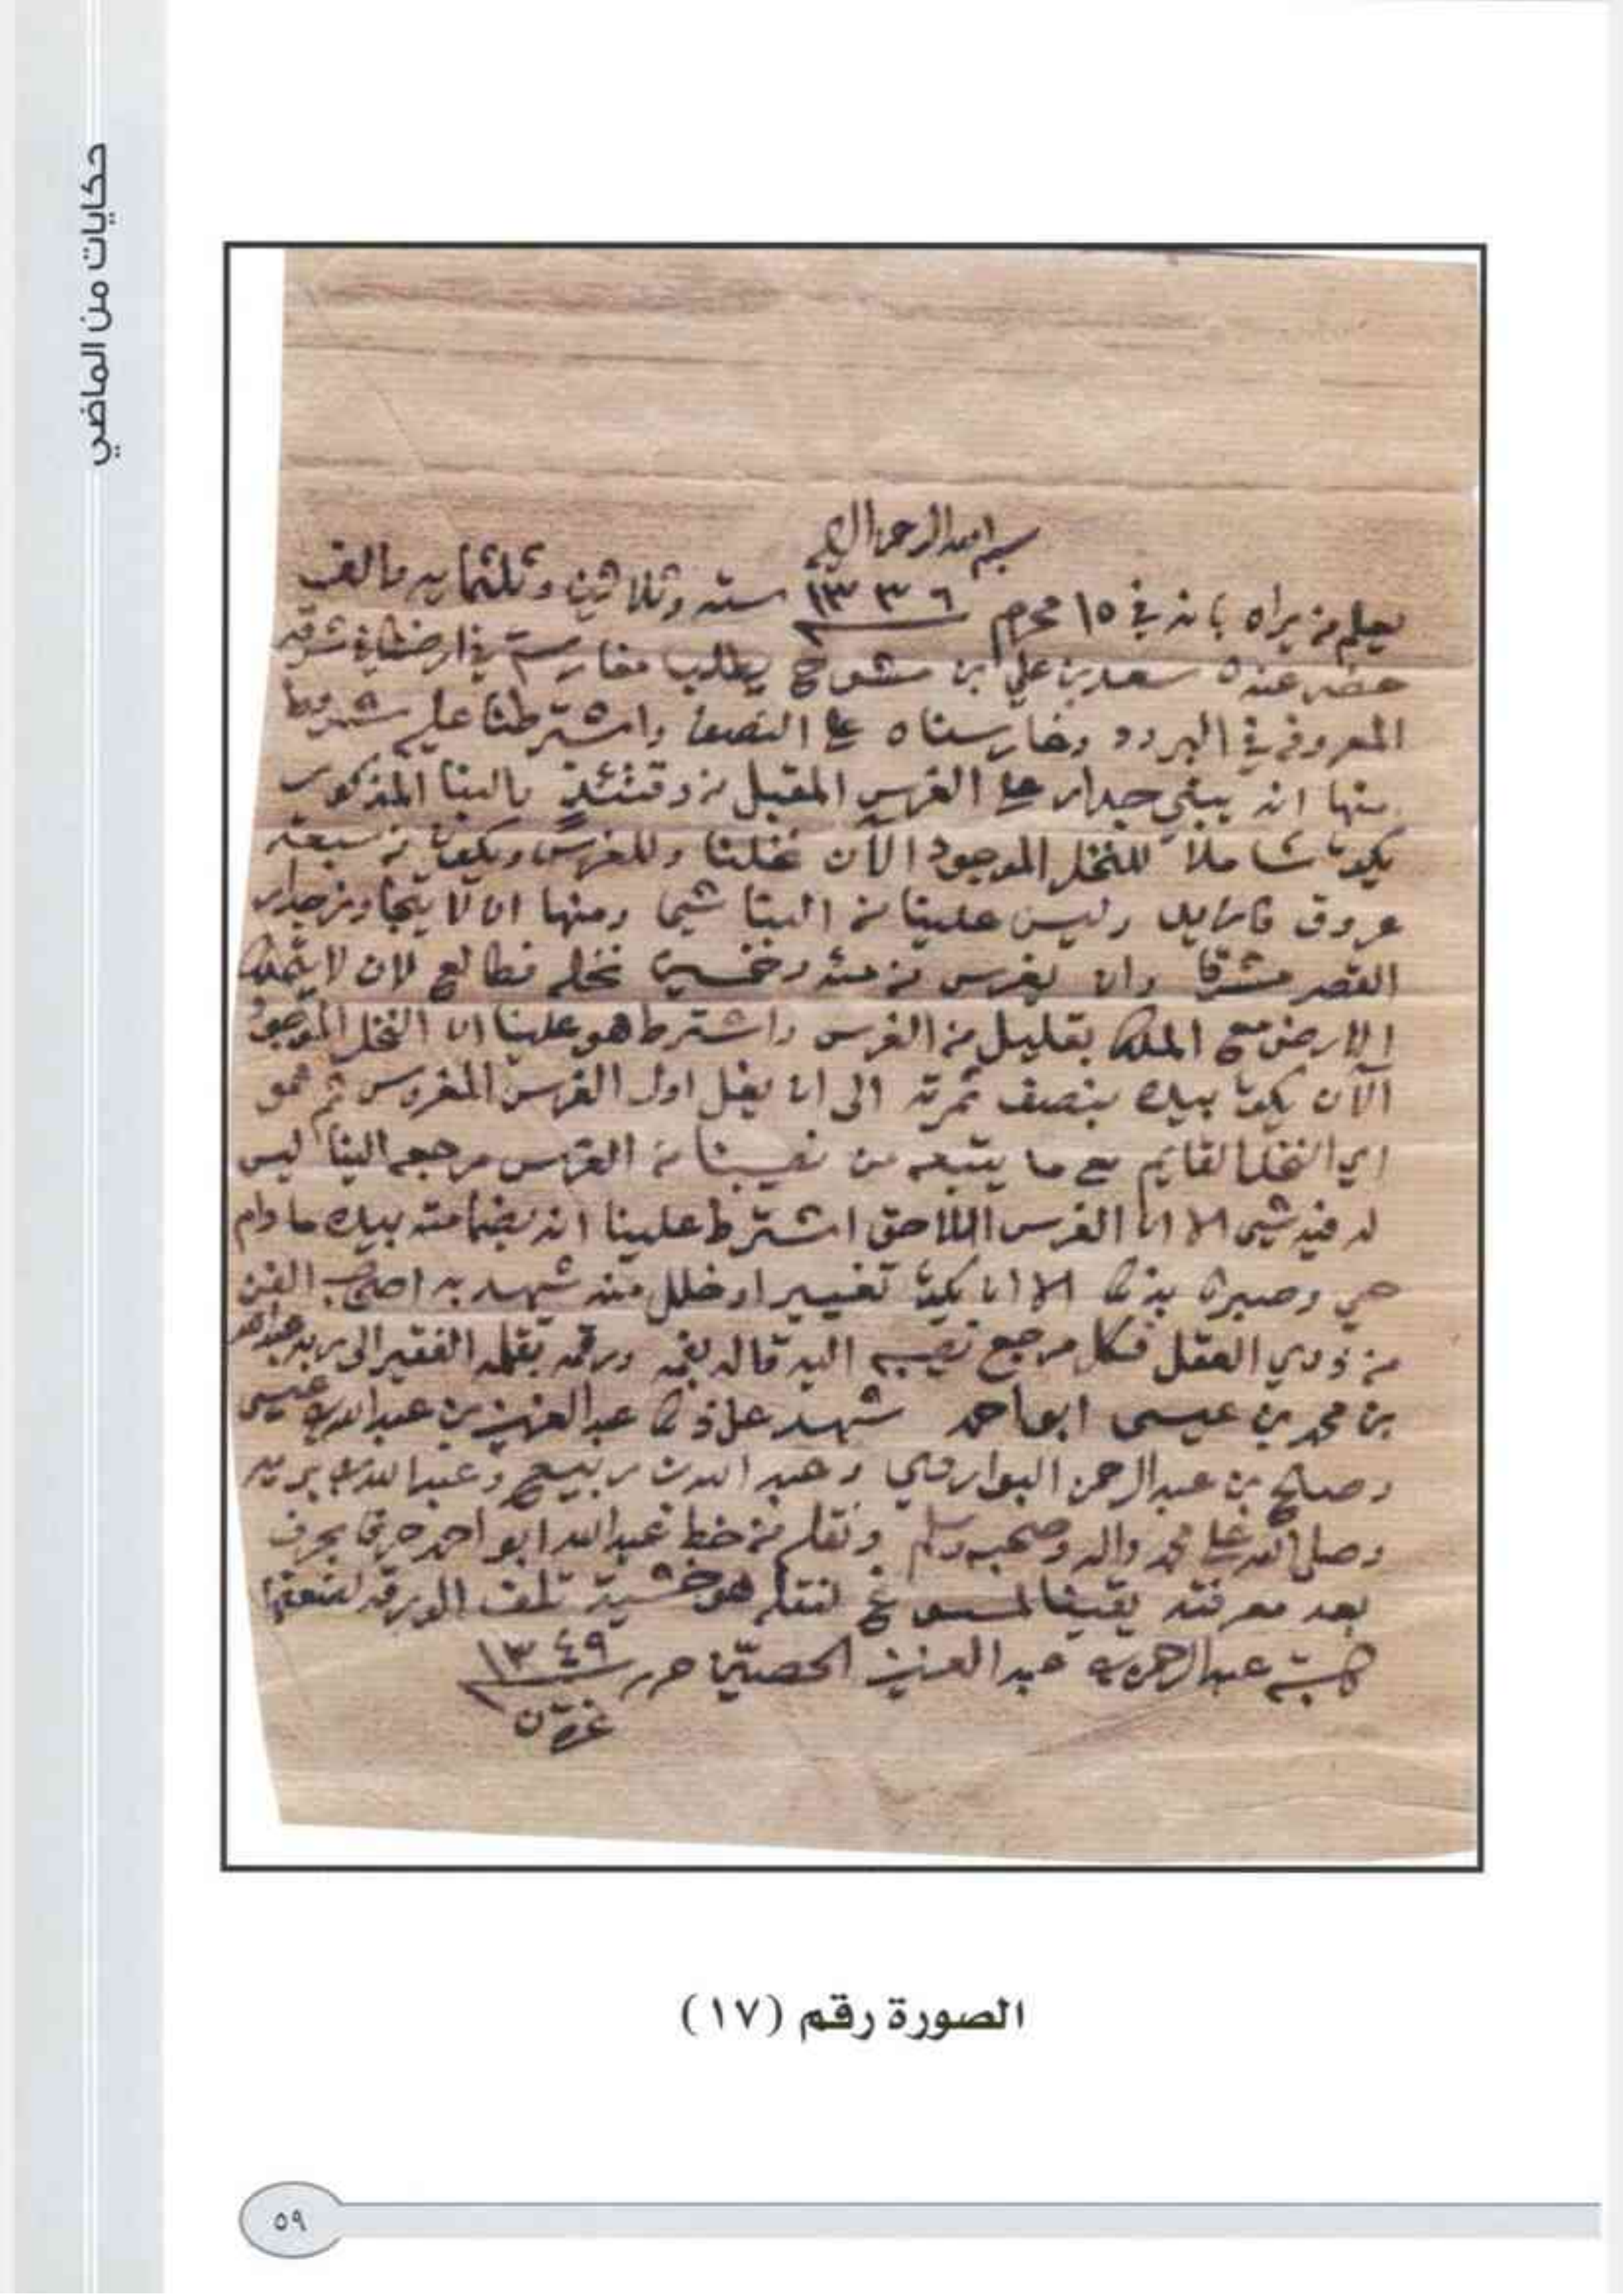 حكايات من الماضي
بسم الله الرحمن الرحيم
يعلم من يراه بانه في ١٥ محرم ١٣٣٦ سته وثلاثين وثلثمايه والف
حضر عندنا سعد بن علي ابن مشوح يطلب مغارسة في ارضنا في شرقيه
المعروفه في البرود وغارسناه على النصف واشترطنا عليه شروط
منها انه يبني جدار على الغرس المقبل من وقتئذٍ بالبنا المذكور
يكون شاملاً للنخل الموجود الآن نخلنا وللغرس ويكون من سبعة
عروق فازايد وليس علينا من البنا شي ومنها ان لا يتجاوز جدار
القصر مشرقا وان يغرس من مئه وخمسين نخله فطالع لان لا يتملك
الارض مع الملك بقليل من الغرس واشترط هو علينا ان النخل الموجود
الآن يكون بيده بنصف ثمرته الى ان يغل اول الغرس المغروس ثم هو
اي النخل القايم مع ما يتبعه من نصيبنا من الغرس مرجعه الينا ليس
له فيه شي الا ان الغرس اللاحق اشترط علينا انه بيده مادام
حي وصبرنا بذلك الا ان يكون تغيير او خلل منه شهد به اصحاب الفن
من ذوي العقل فكل مرجع نصيبه اليه قاله بفمه ورقمه بقلمه الفقير الى ربه عبدالله
بن محمد بن عيسى ابواحمد شهد على ذلك عبدالعزيز بن عبدالله بن عيسى
وصالح بن عبدالرحمن البواردي وعبد الله بن ربيع وعبدالله بن بريه
وصلى الله على محمد واله وصحبه وسلم ونقله من خط عبدالله ابو احمد حرفا بحرف
بعد معرفته يقينا لمسوغ لنقله هو خشية تلف الورقه لضعفها
كتبه عبدالرحمن بن عبدالعزيز الحصيّن حرر ١٣٤٩
الصورة رقم (١٧)
٥٩